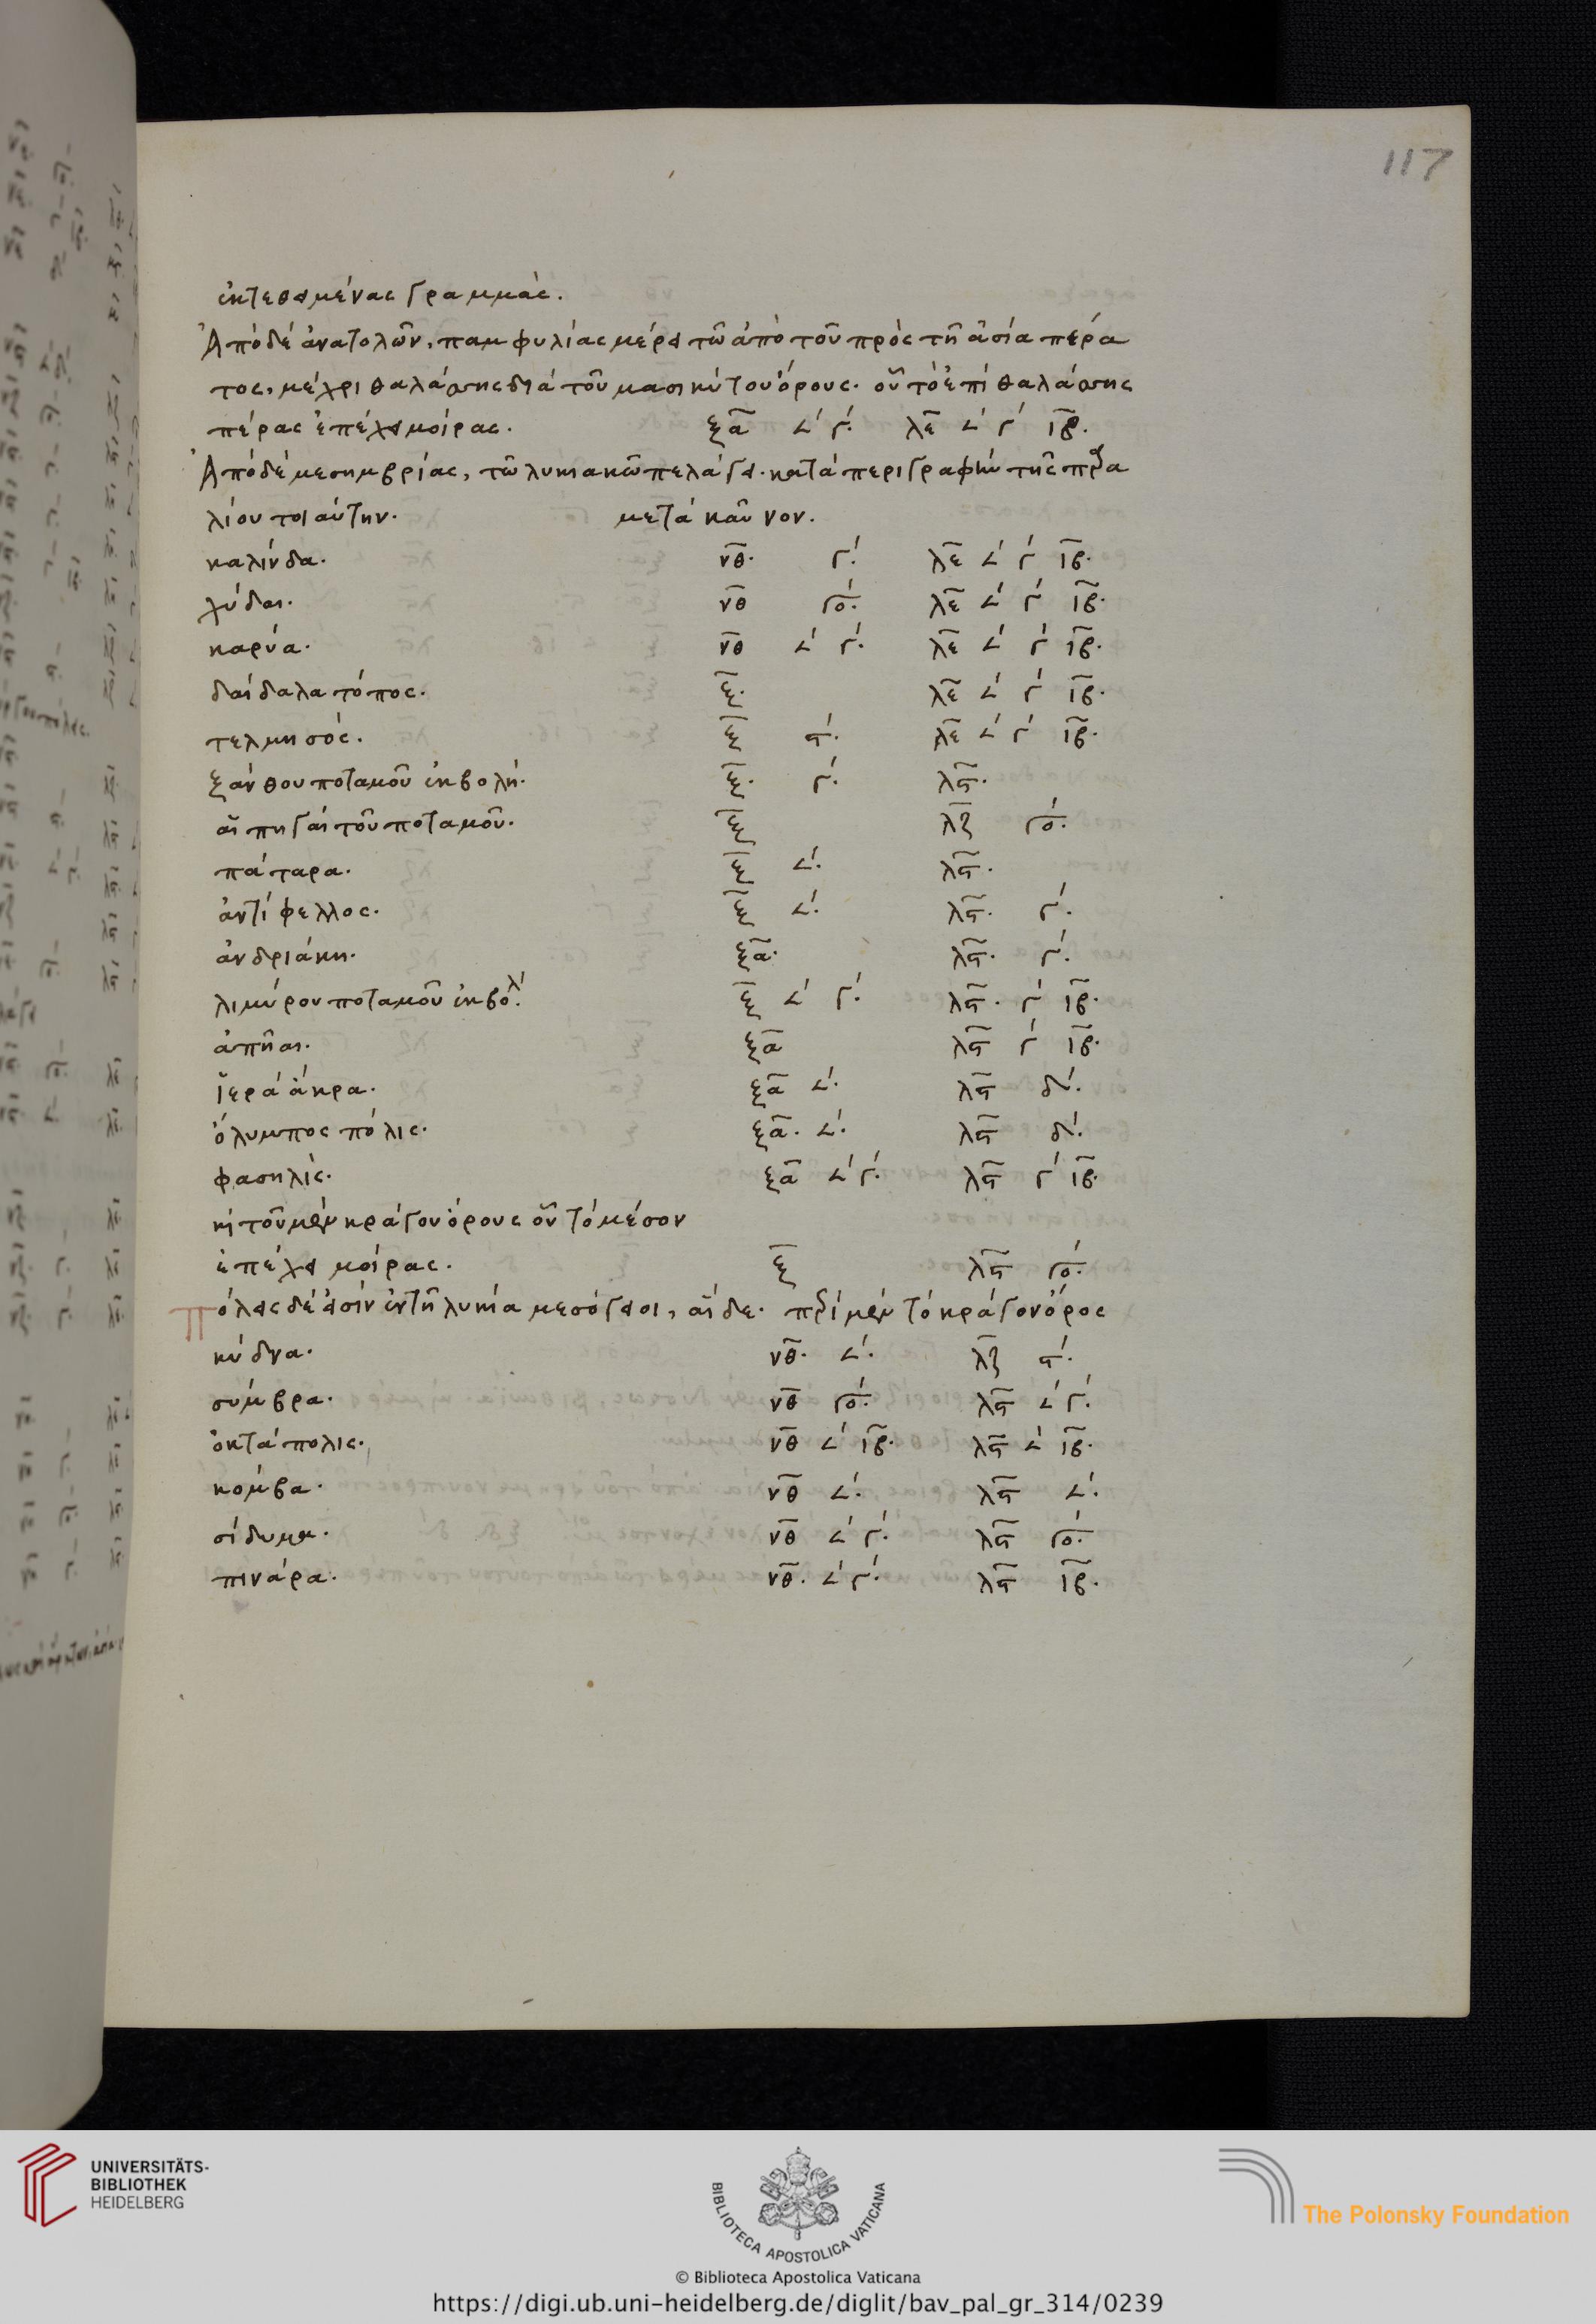 117
ἐκτεθειμένας γραμμάς.
Ἀπὸ δὲ ἀνατολῶν, παμφυλίας μέρει τῶ ἀπὸ τοῦ πρὸς τῆ ἀσία πέρα
τος, μέχρι θαλάσσης διὰ τοῦ μασικύτου ὄρους. οὗ τὸ ἐπὶ θαλάσσης
πέρας ἐπέχει μοίρας. ξα ∠ γ. λε ∠ γ ιβ.
Ἀπὸ δὲ μεσημβρίας, τῶ λυκιακῶ πελάγει. κατὰ περιγραφὴν τῆς πρα
λίου τοιαύτην. μετὰ καῦνον.
καλίνδα. νθ. γ. λε ∠ γ ιβ.
λύδαι. νθ γο. λε ∠ γ ιβ.
καρύα. νθ ∠ γ. λε ∠ γ ιβ.
δαίδαλα τόπος. ξ. λε ∠ γ ιβ.
τελμησός. ξ ϛ. λε ∠ γ ιβ.
ξάνθου ποταμοῦ ἐκβολή. ξ. γ. λϛ.
αἱ πηγαὶ τοῦ ποταμοῦ. ξ λζ γο.
πάταρα. ξ ∠. λϛ.
ἀντίφελλος. ξ ∠. λϛ. γ.
ἀνδριάκη. ξα. λϛ. γ.
λιμύρου ποταμοῦ ἐκβολ. ξ ∠ γ. λϛ. γ ιβ.
ἀπῆαι. ξα λϛ γ ιβ.
ἱερὰ ἄκρα. ξα ∠. λϛ δ.
ὄλυμπος πόλις. ξα. ∠. λϛ δ.
φασηλίς. ξα ∠ γ. λϛ γ ιβ.
κ τοῦ μὲν κράγου ὄρους οὗ τὸ μέσον
ἐπέχει μοίρας. ξ λϛ γο.
Πόλεις δέ εἰσιν ἐν τῆ λυκία μεσόγειοι, αἵδε. πρὶ μὲν τὸ κράγον ὄρος
κύδνα. νθ. ∠. λζ ϛ.
σύμβρα. νθ γο. λϛ ∠ γ.
ὀκτάπολις. νθ ∠ ιβ. λϛ ∠ ιβ.
κόμβα. νθ ∠. λϛ ∠.
σίδυμα. νθ ∠ γ. λϛ γο.
πινάρα. νθ. ∠ γ. λϛ ιβ.
UNIVERSITÄTS-
BIBLIOTHEK
HEIDELBERG
BIBLIOTECA APOSTOLICA VATICANA
The Polonsky Foundation
© Biblioteca Apostolica Vaticana
https://digi.ub.uni-heidelberg.de/diglit/bav_pal_gr_314/0239